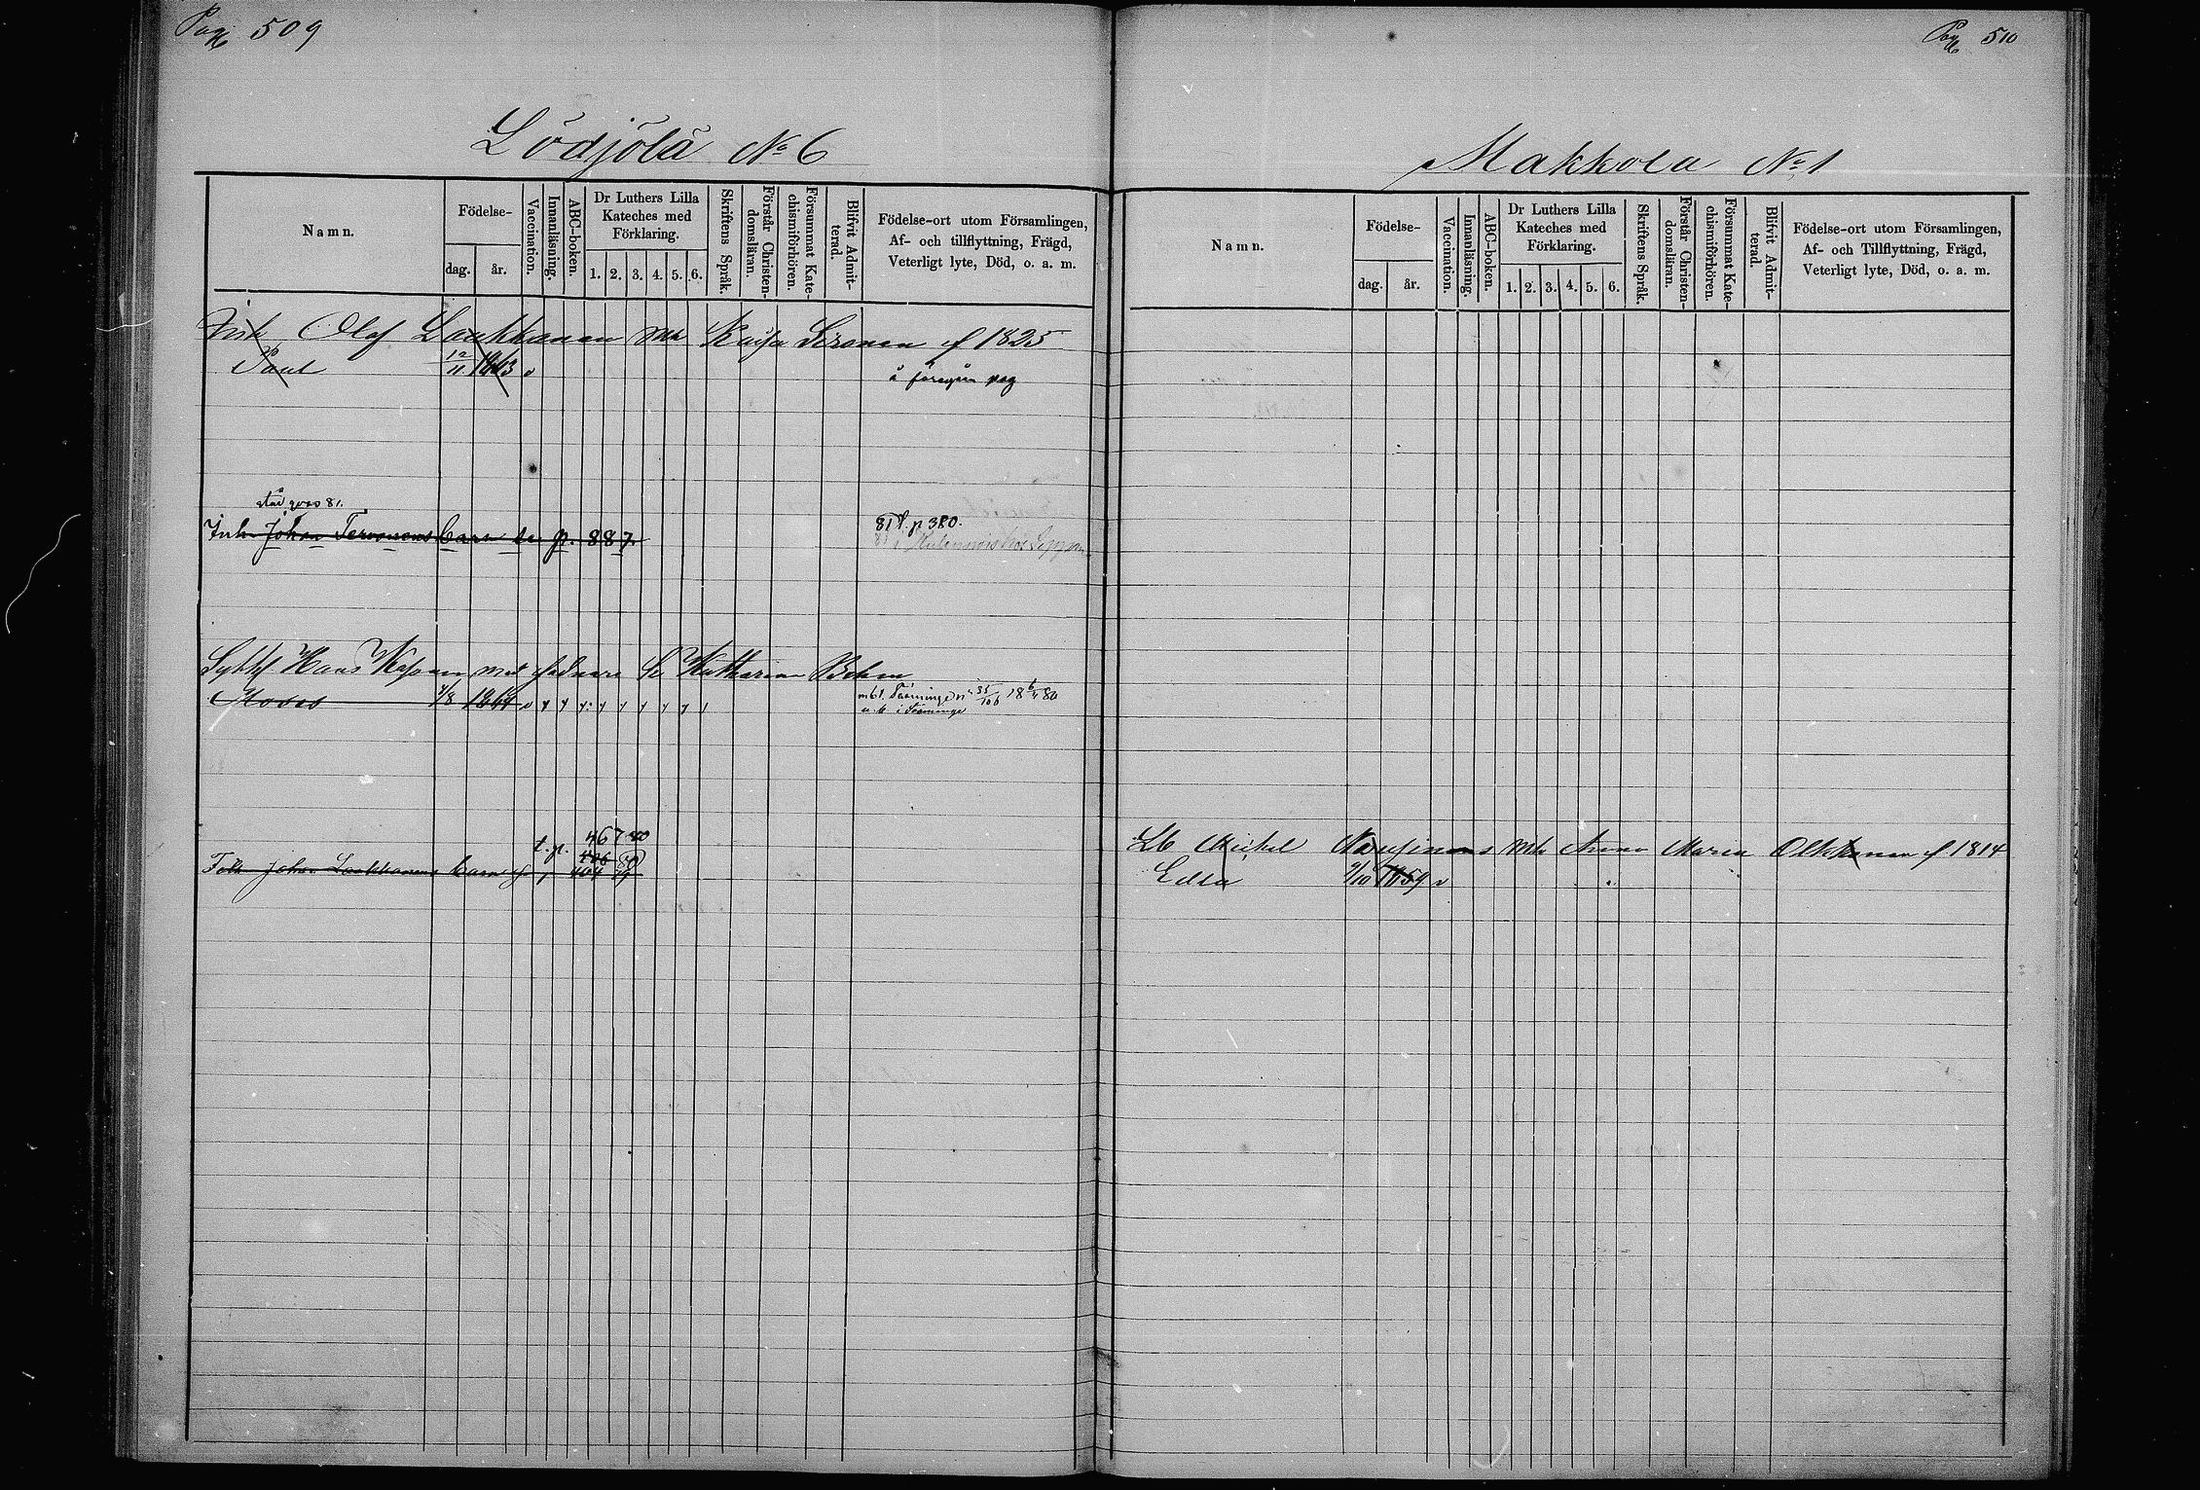 Pag 509
Lödjölä No 6
Namn.
Födelse-
dag.
år.
Vaccination.
Innanläsning.
ABC-boken.
Dr Luthers Lilla
Kateches med
Förklaring.
1. 2. 3. 4. 5. 6.
Skriftens Språk.
Förstår Christen-
domsläran.
Försummat Kate-
chismiförhören.
Blifvit Admit-
terad.
Födelse-ort utom Församlingen,
Af- och tillflyttning, Frägd,
Veterligt lyte, Död, o. a. m.
Olof Laukkanen Kaisa Sironen f 1825
Paul 12/11 1863 v
å föregån pag
81.
Inh Johan Tervonens barn se p. 887.
81 t. p 380.
Hans
Moses 4/8 1864 v
35/106
Katharina
t. p. 467 80
406 80
Johan Laukkanens barn
Pag 510
Makkola No 1
Namn.
Födelse-
dag.
år.
Vaccination.
Innanläsning.
ABC-boken.
Dr Luthers Lilla
Kateches med
Förklaring.
1. 2. 3. 4. 5. 6.
Skriftens Språk.
Förstår Christen-
domsläran.
Försummat Kate-
chismiförhören.
Blifvit Admit-
terad.
Födelse-ort utom Församlingen,
Af- och Tillflyttning, Frägd,
Veterligt lyte, Död, o. a. m.
Lb Michel Anna Maria Olkkonen f 1814
Edla 9/10 1859 v